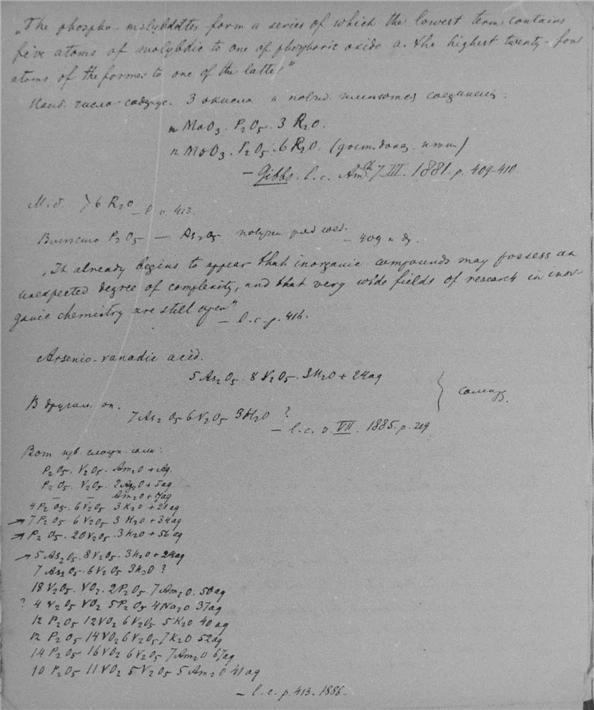 „The phospho-molybdates form a series of which the lowest term contains
five atoms of molybdic to one of phosphoric oxide a. the highest twenty-four
atoms of the former to one of the latter"
число 3 окисла и
n MoO3 . P2O5 . 3 R2O.
n MoO3 . P2O5 . 6 R2O
– Gibbs. l. c. Am. J. III. 1881. p. 409-410
М. б. > 6 R2O – l. c. 413.
Вместо P2O5 — As2O5 – 409 и др.
„It already begins to appear that inorganic compounds may possess an
unexpected degree of complexity, and that very wide fields of research in inor-
ganic chemistry are still open" – l. c. p. 416.
Arsenio-vanadic acid.
5 As2O5 . 8 V2O5 . 3H2O + 24aq
В других оп.
7As2O5 6V2O5 3H2O ?
– l. c. v. VII. 1885. p. 209
Вот изв. сложн. соли:
P2O5 . V2O5 . Am2O + aq.
P2O5 . V2O5 . 2Ag2O + 5aq
— — Am2O + 7aq
4P2O5 . 6V2O5 . 3K2O + 21aq
→ 7P2O5 6V2O5 3H2O + 34aq
→ P2O5 . 20V2O5 . 3H2O + 56aq
→ 5As2O5 . 8V2O5 . 3H2O + 24aq
7As2O5 . 6V2O5 3H2O ?
18V2O5 . VO2 . 2P2O5 7Am2O . 50aq
? 4V2O5 VO2 5P2O5 4Na2O 37aq
12P2O5 12VO2 6V2O5 5K2O 40aq
12P2O5 14VO2 6V2O5 7K2O 52aq
14P2O5 16VO2 6V2O5 7Am2O 67aq
10P2O5 11VO2 5V2O5 5Am2O 41aq
– l. c. p. 413. 1886.